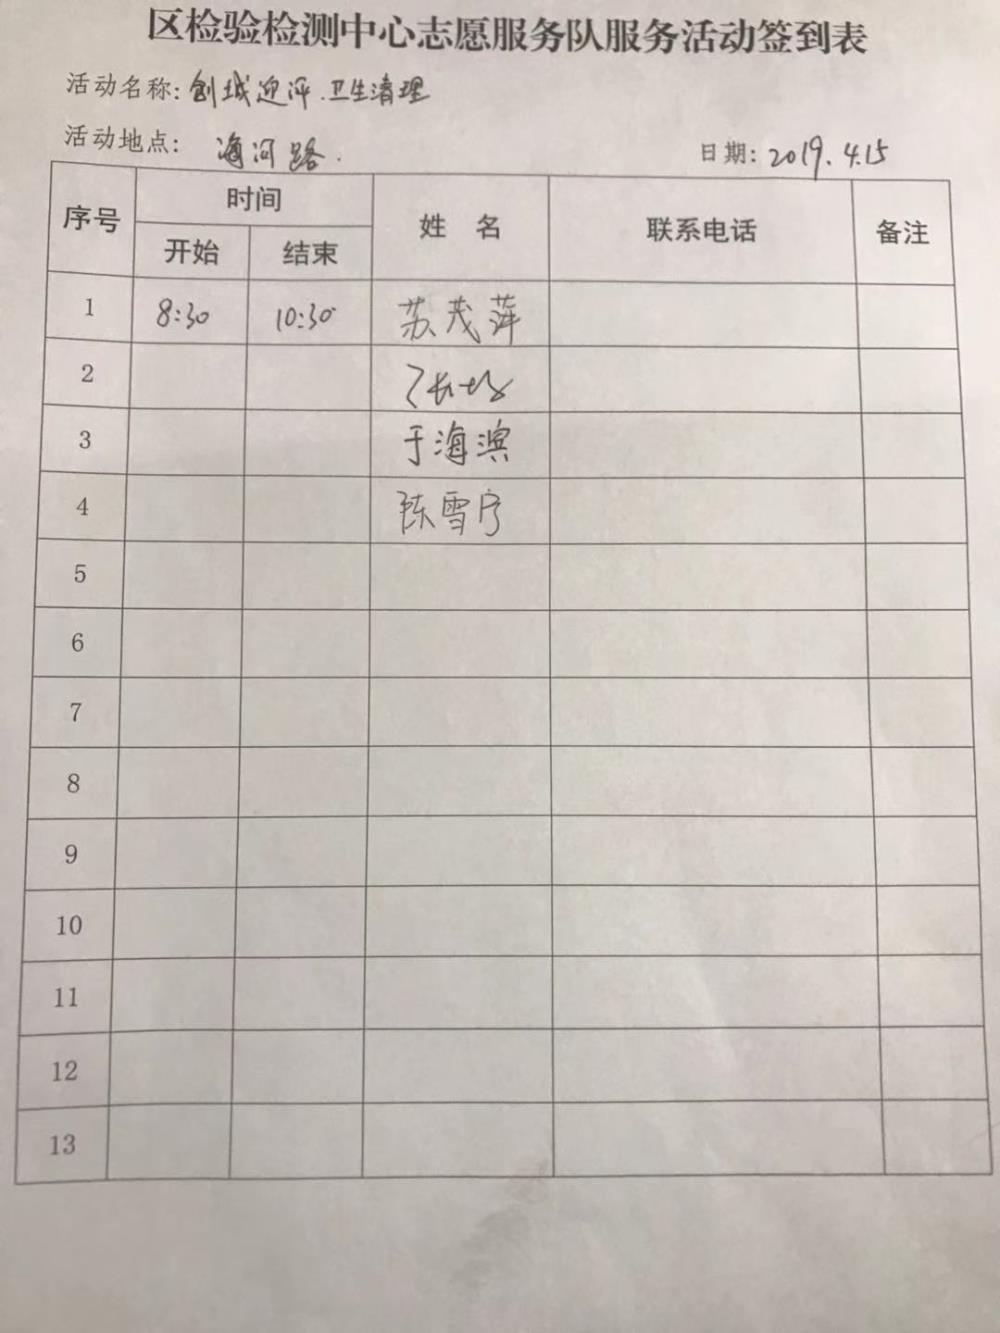 区检验检测中心志愿服务队服务活动签到表
活动名称: 创城迎评.卫生清理
活动地点: 海河路.
日期: 2019.4.15
序号 时间 姓 名 联系电话 备注
开始 结束
1 8:30 10:30 苏茂萍
2
3 于海滨
4 陈雪
5
6
7
8
9
10
11
12
13